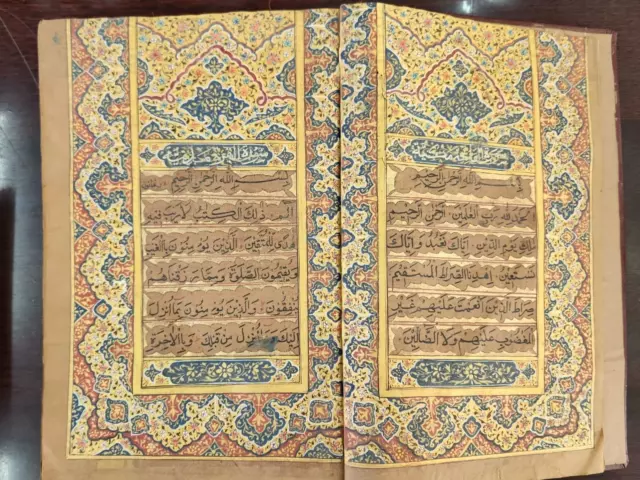 سورة الفاتحة
بسم الله الرحمن الرحيم
الحمد لله رب العلمین الرحمن الرحیم
ملك یوم الدین ایاك نعبد و ایاك
نستعین اهدنا الصراط المستقیم
صراط الذین انعمت علیهم غیر
المغضوب علیهم ولا الضالین
سورة البقرة
بسم الله الرحمن الرحيم
الم ذلك الكتب لا ریب فیه
هدی للمتقین الذین یؤمنون بالغیب
ویقیمون الصلوة ومما رزقناهم
ینفقون والذین یؤمنون بما انزل
الیك وما انزل من قبلك وبالاخرة